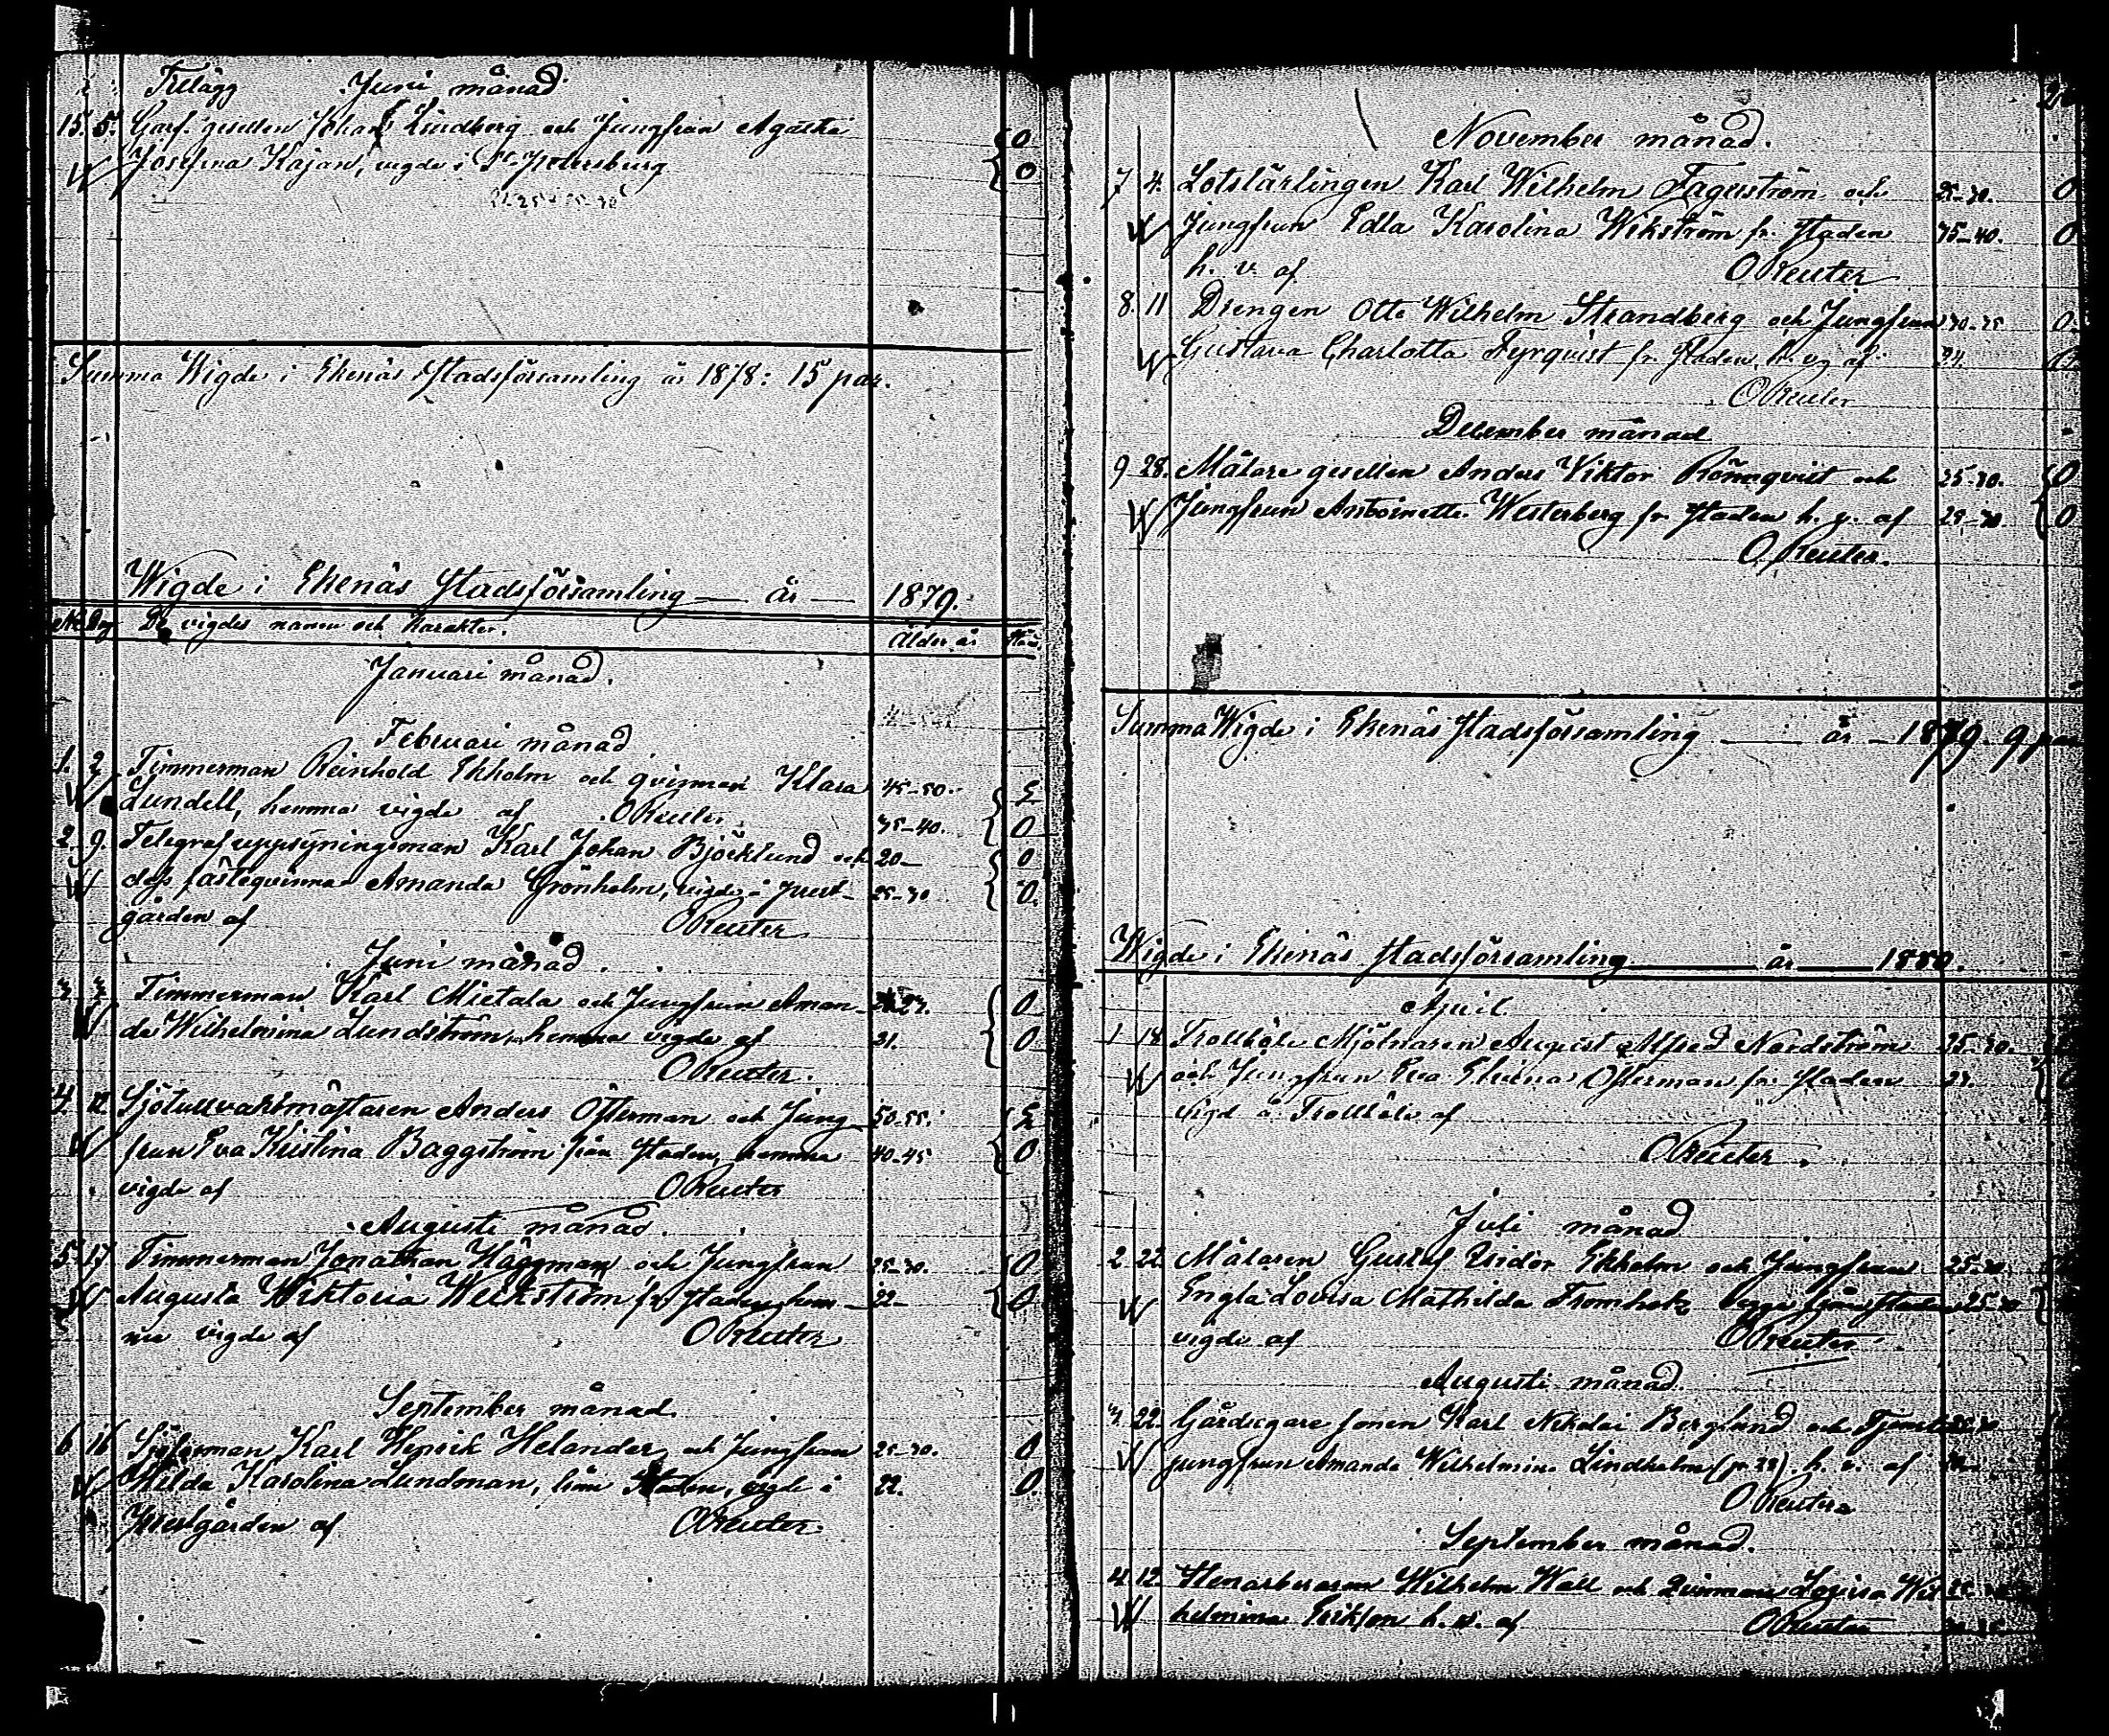 Tillägg Juni månad
15. 5. Garf. gesellen Johan Lindberg och Jungfrun Agatha O
W Josefina Kajan, vigde i St Petersburg O
Summa Wigde i Ekenäs Stadsförsamling år 1878: 15 par.
Wigde i Ekenäs Stadsförsamling — år — 1879.
No Dag De vigdes namn och karakter. Ålder år
Januari månad.
Februari månad
1. 2 Timmerman Reinhold Ekholm och qvinnan Klara 45-50.
W Lundell, hemma vigde af O Reuter. 35-40. O
2. 9. Telegrafuppsyningsman Karl Johan Björklund och 20- O
W dess fästeqvinna Amanda Grönholm, vigde i Prest- 25-30 O.
gården af O Reuter
Juni månad.
3. 3. Timmerman Karl Mietala och Jungfrun Aman- O
W da Wilhelmina Lundström, hemma vigde af 21. O
O Reuter.
4. 12 Sjötullvaktmästaren Anders Österman och Jung- 50-55.
W frun Eva Kristina Baggström från Staden, hemma 40-45 O
vigde af O Reuter
Augusti månad.
5. 17 Timmerman Jonathan Häggman och Jungfrun 25-30. O
W Augusta Wiktoria Weckström fr. Staden, hem- 22- O
ma vigde af O Reuter
September månad.
6 16 Karl Henrik Helander och Jungfrun 25-30. O
W Hilda Karolina Lundman, från Staden, vigde i 22. O.
Prestgården af O Reuter.
November månad.
7 4. Lotslärlingen Karl Wilhelm Fagerström och 25-30. O
W Jungfrun Edla Karolina Wikström fr. Staden 35-40. O
h. v. af O Reuter
8. 11 Drengen Otto Wilhelm Strandberg och Jungfrun 30-35 O.
W Gustava Charlotta Fyrqvist fr. Staden, h. vg af 24.
O Reuter
December månad
9 28. Målare gesellen Anders Viktor Rönnqvist och 25-30. O
W Jungfrun Antoinette Westerberg fr. Staden h. v. af 29-30. O
O. Reuter.
Summa Wigde i Ekenäs Stadsförsamling — år — 1879. 9
Wigde i Ekenäs Stadsförsamling — år — 1880.
April.
1 18. Trollböle Mjölnaren August Alfred Nordström 25-30.
W och Jungfrun Eva Elvina Österman fr. Staden
vigd å Trollböle af
O Reuter.
Juli månad
2 22. Målaren Gustaf Isidor Ekholm och Jungfrun 25-30
W Engla Lovisa Mathilda Fromholtz begge från Staden 25-30
vigde af O Reuter.
Augusti månad.
3. 22. Gårdsegare sonen Karl Nikolai Berglund och
W jungfrun Amanda Wilhelmina Lindholm h. v. af
O Reuter
September månad.
4. 12. Stenarbetaren Wilhelm Wall och Qvinnan Lovisa Wil-
W helmina Erikson h. v. af O Reuter